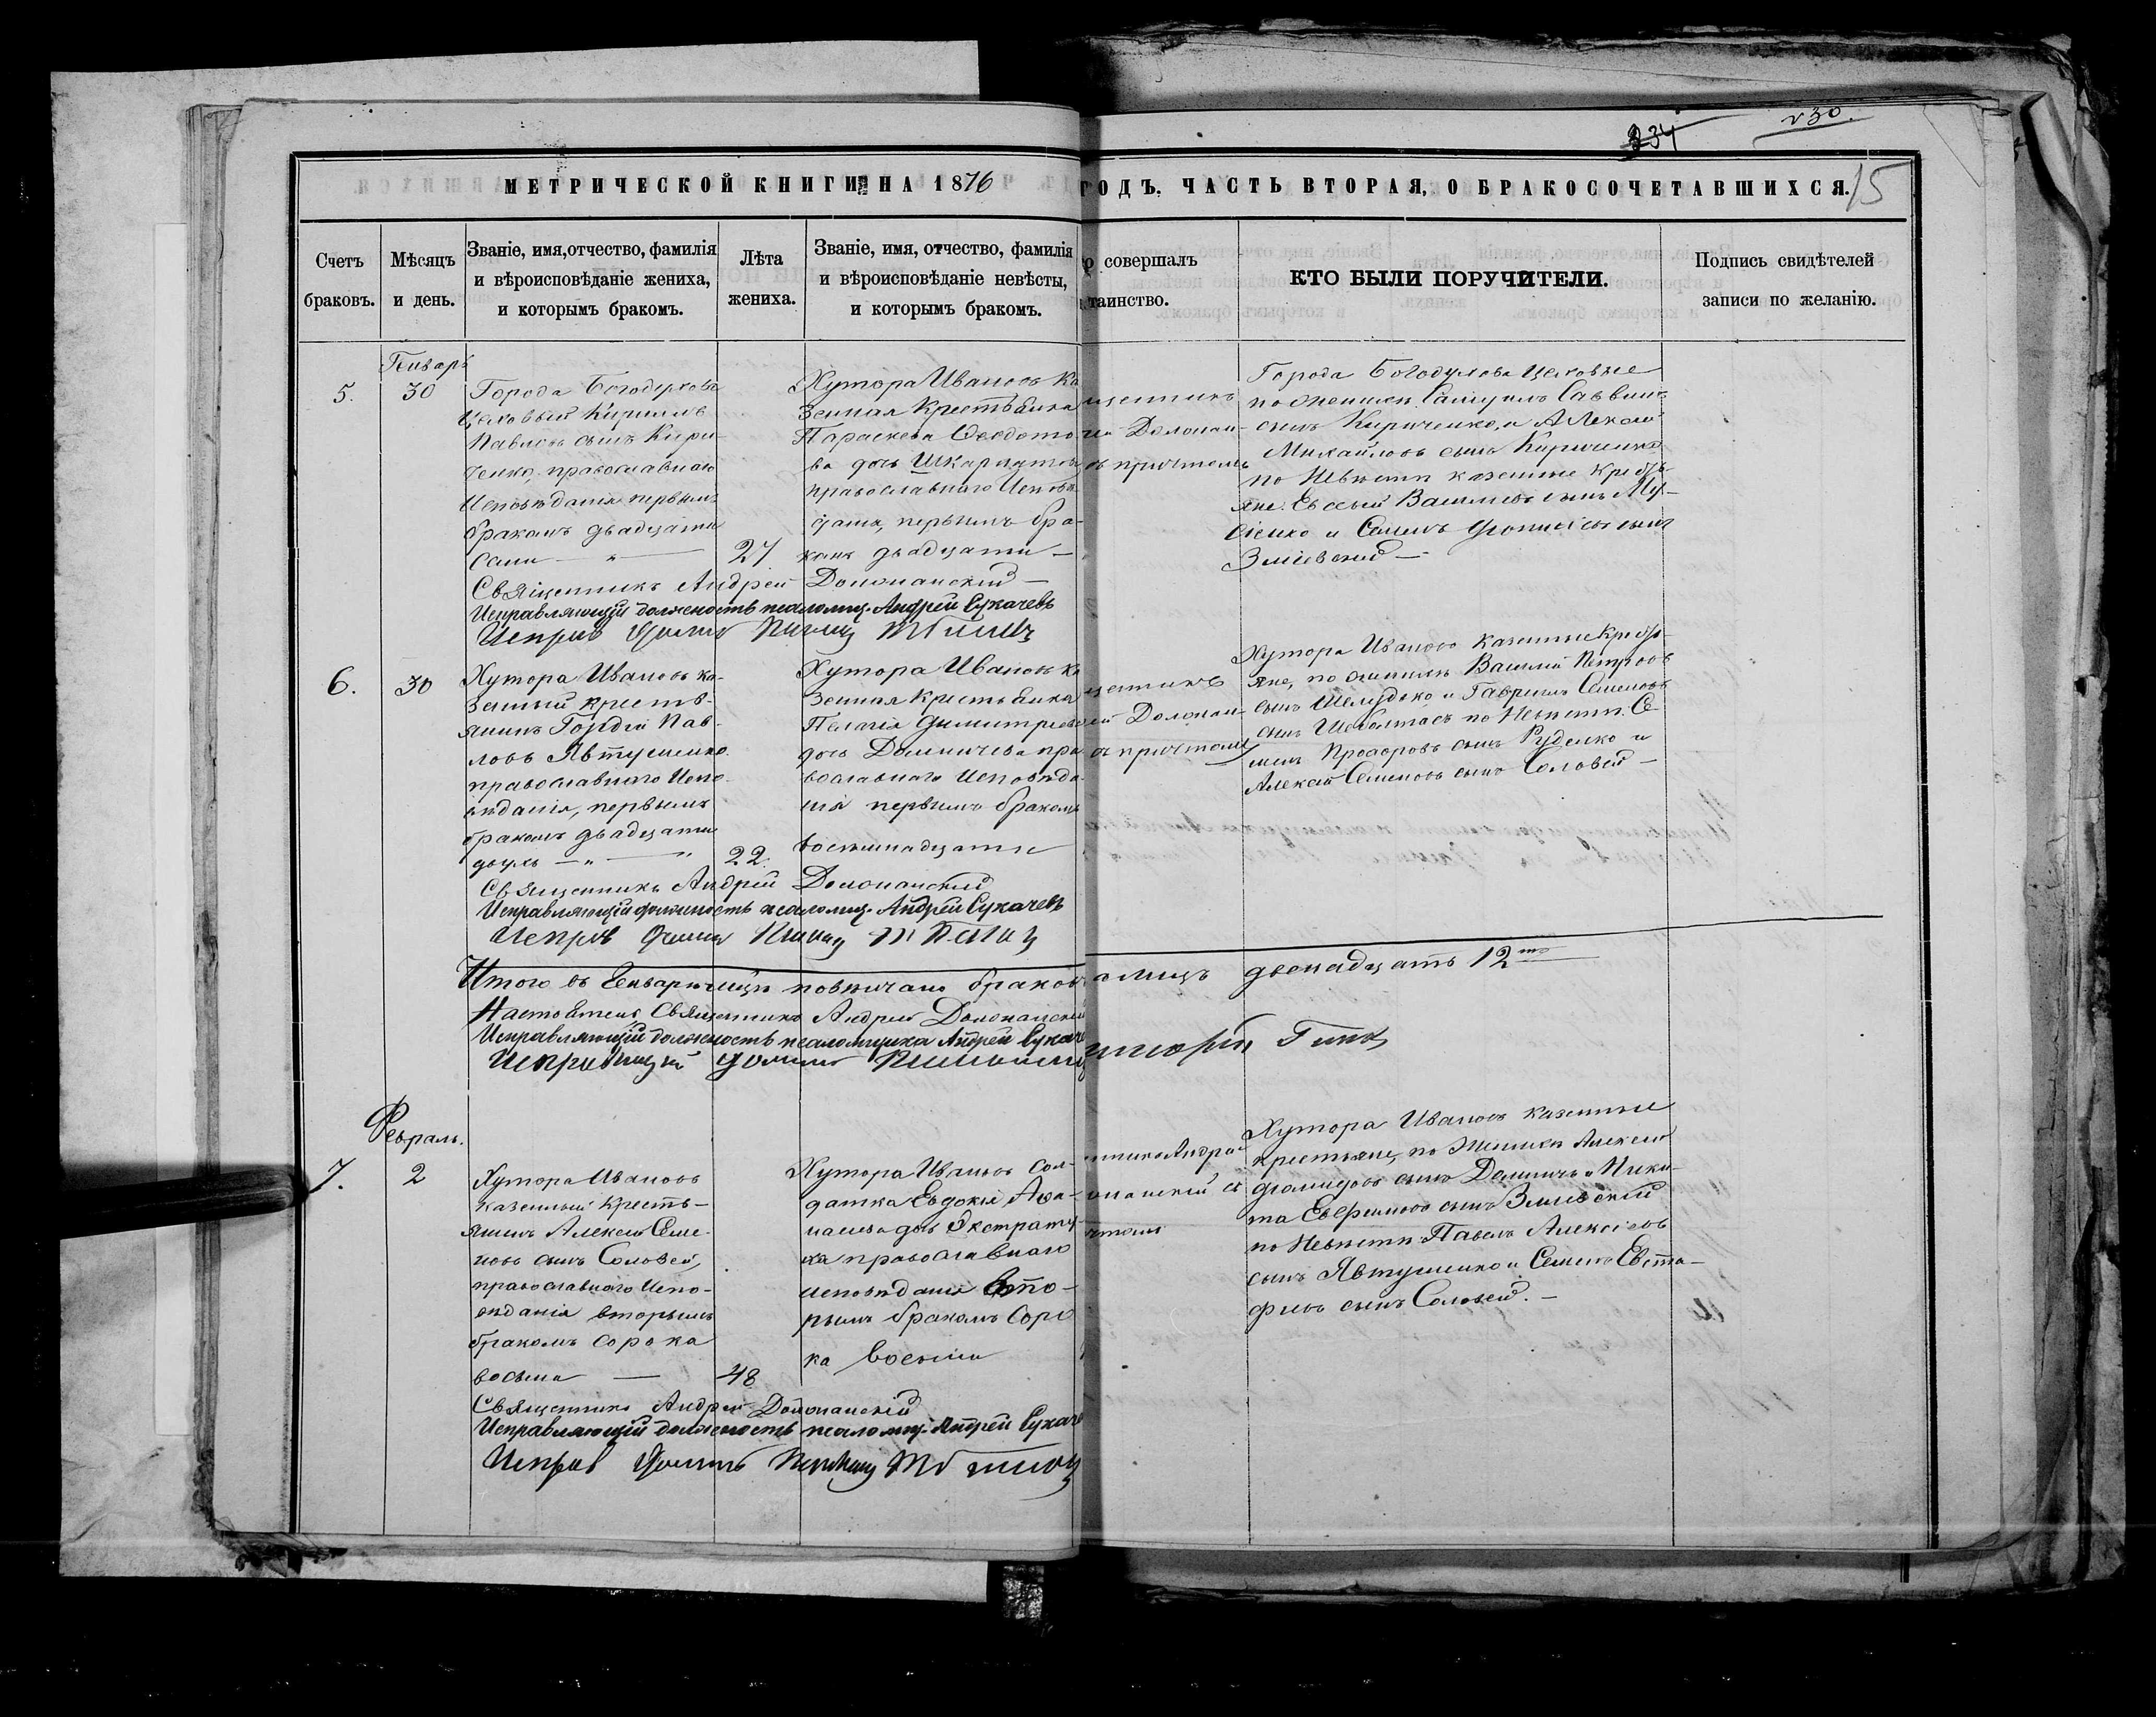 234
230.
МЕТРИЧЕСКОЙ КНИГИ НА 1876
ГОДЪ. ЧАСТЬ ВТОРАЯ, О БРАКОСОЧЕТАВШИХСЯ.
15
Счетъ
браковъ.
Мѣсяцъ
и день.
Званіе, имя, отчество, фамилія
и вѣроисповѣданіе жениха,
и которымъ бракомъ.
Лѣта
жениха.
Званіе, имя, отчество, фамилія
и вѣроисповѣданіе невѣсты,
и которымъ бракомъ.
совершалъ
таинство.
КТО БЫЛИ ПОРУЧИТЕЛИ.
Подпись свидѣтелей
записи по желанію.
5.
30
Города Богодухова
Цеховый Кириллъ
Павловъ сынъ Кири-
ченко, православнаго
Исповѣданія первымъ
бракомъ двадцати
семи
27
Хутора Ивановъ Ка
зенная Крестьянка
Параскева Ѳеодото
ва дочь Шкарупи
православнаго Исповѣ
данія, первымъ бра-
комъ двадцати —
щенникъ
Доломан-
ъ причтомъ
Города Богодухова Цеховые
по Женихѣ Самуилъ Саввинъ
сынъ Кириченко, и Алексей
Михайловъ сынъ Кириченко
по Невѣстѣ казенные Кресть-
яне: Евсевій Васильевъ сынъ
и Семенъ сынъ
Зміевскій —
Священникъ Андрей Доломанскій —
Исправляющій должность псаломщ. Андрей Сукачевъ
6.
30
Хутора Ивановъ ка-
зенный крестья-
нинъ Гордѣй Пав-
ловъ Явтушенко
православнаго Испо-
вѣданія, первымъ
бракомъ двадцати
двухъ
22.
Хутора Ивановъ Ка
зенная Крестьянка
Пелагія Димитріев
дочь Доличева пра
вославнаго Исповѣда
нія первымъ бракомъ
восемнадцати
щенникъ
Доломан-
ъ причтомъ
Хутора Ивановъ казенные Кресть-
яне, по женихѣ Василій Петровъ
сынъ Шелудько и Гавріилъ Семеновъ
сынъ по Невѣстѣ Се-
менъ Прохоровъ сынъ Руденко и
Алексѣй Семеновъ сынъ Соловей —
Священникъ Андрей Доломанскій
Исправляющій должность псаломщ. Андрей Сукачевъ
Итого въ Енварѣ мѣцѣ повѣнчано браковъ
а лицъ двенадцать 12
Настоятель Священникъ Андрей Доломанскій
Исправляющій должность псаломщика Андрей Сукаче
Февраль.
7.
2
Хутора Ивановъ
казенный Кресть-
янинъ Алексѣй Семе-
новъ сынъ Соловей,
православнаго Испо-
вѣданія вторымъ
бракомъ сорока
восьми —
48
Хутора Ивановъ Сол-
датка Евдокія Аѳа-
насіева дочь
ка православнаго
исповѣданія вто-
рымъ бракомъ Соро
ка восьми
нникъ Андрей
оманскій съ
чтомъ
Хутора Ивановъ казенные
крестьяне, по Женихѣ Алексѣй
сынъ Доличъ и Ники-
та Евфимовъ сынъ Зміевскій
по Невѣстѣ Павелъ Алексѣевъ
сынъ Явтушенко и Семенъ Евста-
фіевъ сынъ Соловей. —
Священникъ Андрей Доломанскій
Исправляющій должность псаломщ. Андрей Сукаче